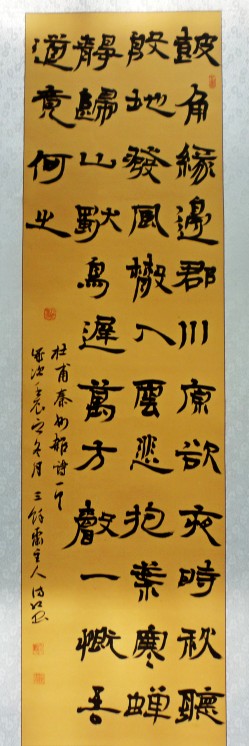 鼓角緣邊郡川原欲夜時秋聽
殷地發風散入雲悲抱葉寒蟬
靜歸山獨鳥遲萬方聲一概吾
道竟何之
杜甫秦州雜詩一首
歲次壬辰之冬月三餘齋主人